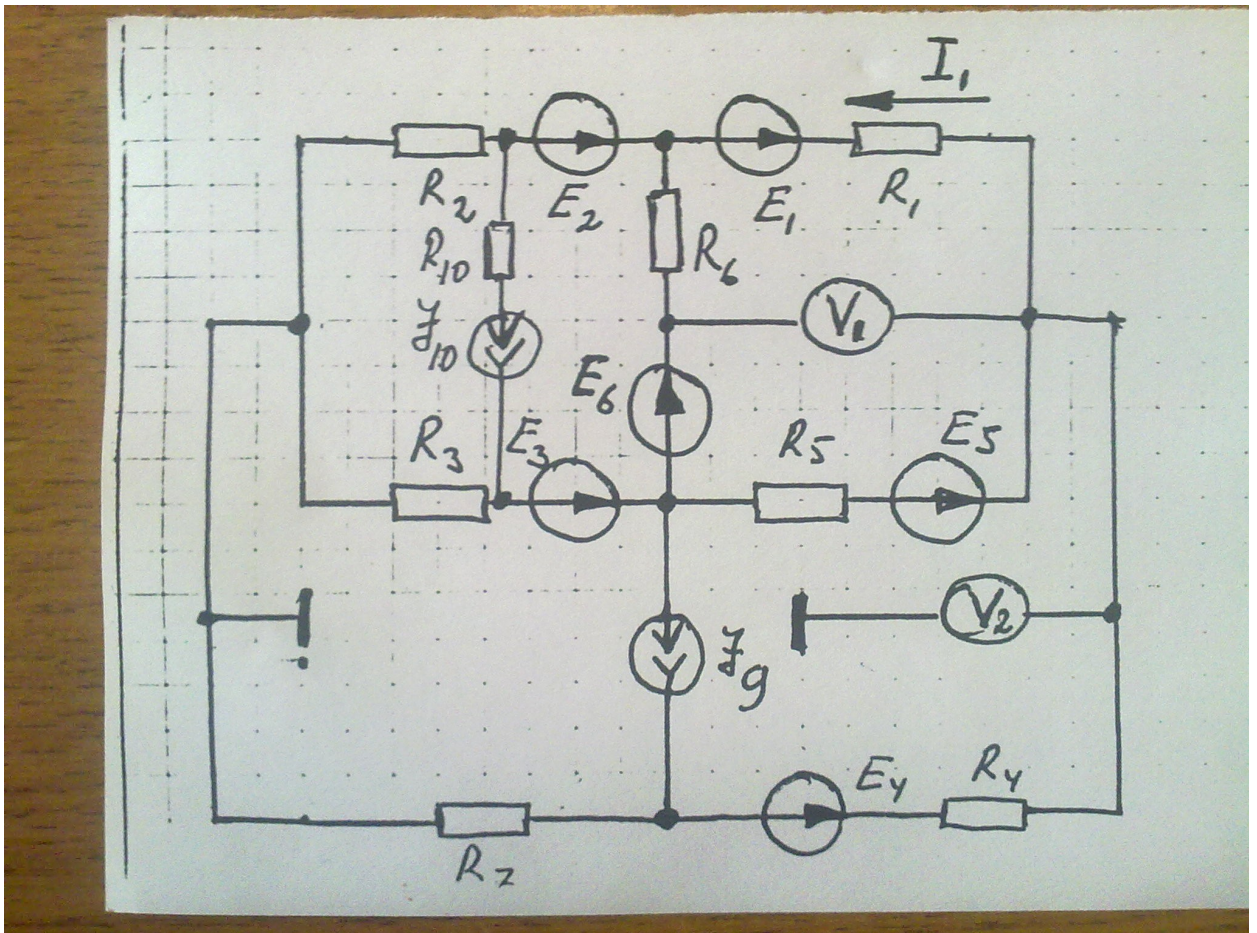 I₁
R₂
E₂
E₁
R₁
R₁₀
R₆
J₁₀
V₁
E₆
R₃
E₃
R₅
E₅
V₂
J₉
E₄
R₄
R₇